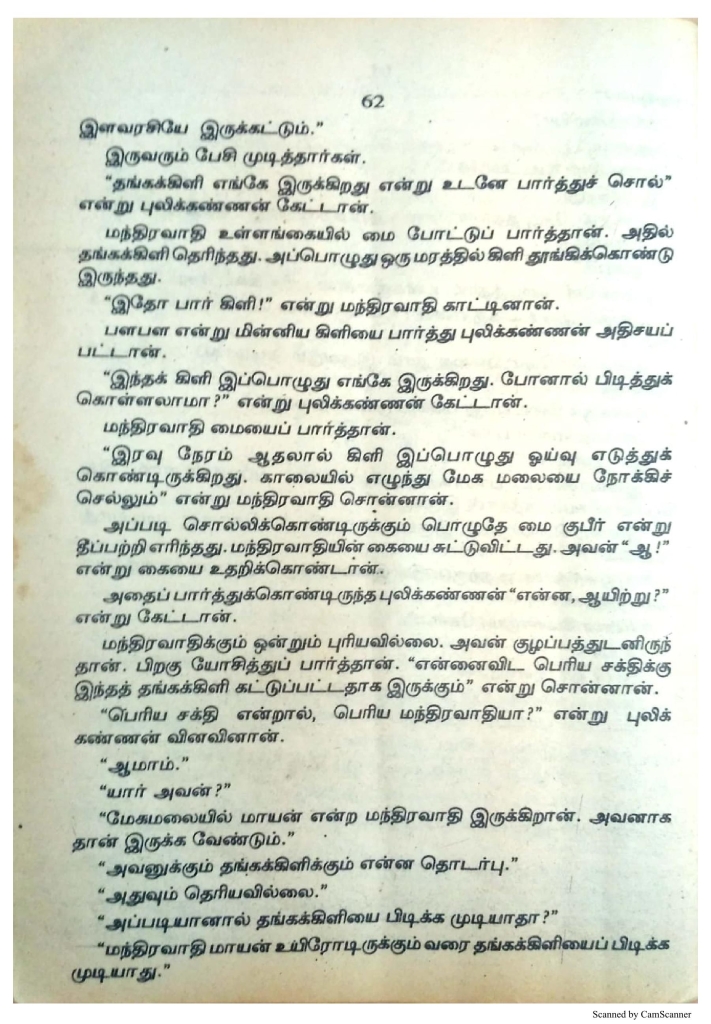 62
இளவரசியே இருக்கட்டும்.”
இருவரும் பேசி முடித்தார்கள்.
“தங்கக்கிளி எங்கே இருக்கிறது என்று உடனே பார்த்துச் சொல்”
என்று புலிக்கண்ணன் கேட்டான்.
மந்திரவாதி உள்ளங்கையில் மை போட்டுப் பார்த்தான். அதில்
தங்கக்கிளி தெரிந்தது. அப்பொழுது ஒரு மரத்தில் கிளி தூங்கிக்கொண்டு
இருந்தது.
“இதோ பார் கிளி!” என்று மந்திரவாதி காட்டினான்.
பளபள என்று மின்னிய கிளியை பார்த்து புலிக்கண்ணன் அதிசயப்
பட்டான்.
“இந்தக் கிளி இப்பொழுது எங்கே இருக்கிறது. போனால் பிடித்துக்
கொள்ளலாமா?” என்று புலிக்கண்ணன் கேட்டான்.
மந்திரவாதி மையைப் பார்த்தான்.
“இரவு நேரம் ஆதலால் கிளி இப்பொழுது ஓய்வு எடுத்துக்
கொண்டிருக்கிறது. காலையில் எழுந்து மேக மலையை நோக்கிச்
செல்லும்” என்று மந்திரவாதி சொன்னான்.
அப்படி சொல்லிக்கொண்டிருக்கும் பொழுதே மை குபீர் என்று
தீப்பற்றி எரிந்தது. மந்திரவாதியின் கையை சுட்டுவிட்டது. அவன் “ஆ!”
என்று கையை உதறிக்கொண்டான்.
அதைப் பார்த்துக்கொண்டிருந்த புலிக்கண்ணன் “என்ன, ஆயிற்று?”
என்று கேட்டான்.
மந்திரவாதிக்கும் ஒன்றும் புரியவில்லை. அவன் குழப்பத்துடனிருந்
தான். பிறகு யோசித்துப் பார்த்தான். “என்னைவிட பெரிய சக்திக்கு
இந்தத் தங்கக்கிளி கட்டுப்பட்டதாக இருக்கும்” என்று சொன்னான்.
“பெரிய சக்தி என்றால், பெரிய மந்திரவாதியா?” என்று புலிக்
கண்ணன் வினவினான்.
“ஆமாம்.”
“யார் அவன்?”
“மேகமலையில் மாயன் என்ற மந்திரவாதி இருக்கிறான். அவனாக
தான் இருக்க வேண்டும்.”
“அவனுக்கும் தங்கக்கிளிக்கும் என்ன தொடர்பு.”
“அதுவும் தெரியவில்லை.”
“அப்படியானால் தங்கக்கிளியை பிடிக்க முடியாதா?”
“மந்திரவாதி மாயன் உயிரோடிருக்கும் வரை தங்கக்கிளியைப் பிடிக்க
முடியாது.”
Scanned by CamScanner